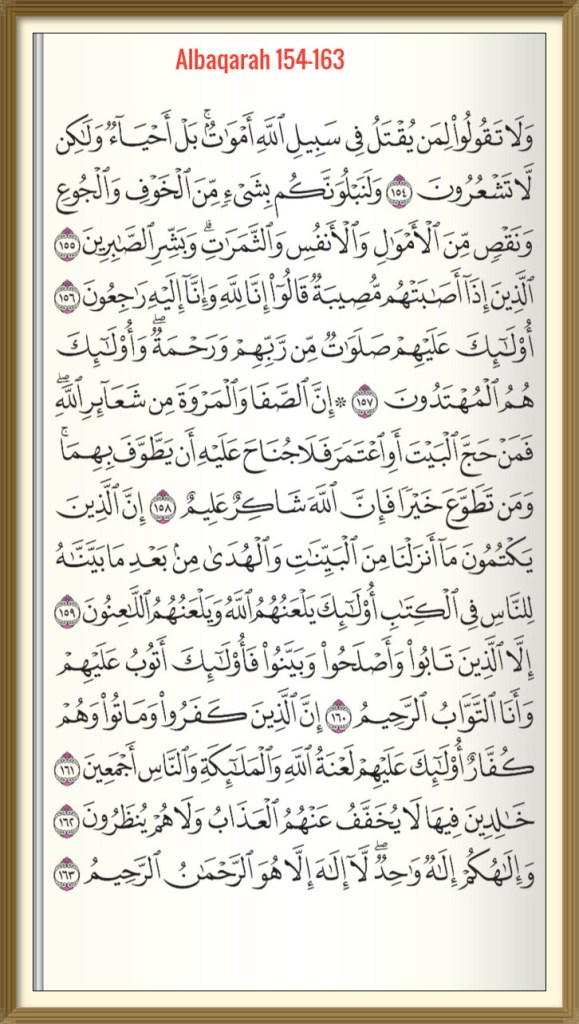 Albaqarah 154-163
وَلَا تَقُولُوا۟ لِمَن يُقْتَلُ فِى سَبِيلِ ٱللَّهِ أَمْوَٰتٌۢ ۚ بَلْ أَحْيَآءٌ وَلَـٰكِن
لَّا تَشْعُرُونَ ١٥٤ وَلَنَبْلُوَنَّكُم بِشَىْءٍ مِّنَ ٱلْخَوْفِ وَٱلْجُوعِ
وَنَقْصٍ مِّنَ ٱلْأَمْوَٰلِ وَٱلْأَنفُسِ وَٱلثَّمَرَٰتِ ۗ وَبَشِّرِ ٱلصَّـٰبِرِينَ ١٥٥
ٱلَّذِينَ إِذَآ أَصَـٰبَتْهُم مُّصِيبَةٌ قَالُوٓا۟ إِنَّا لِلَّهِ وَإِنَّآ إِلَيْهِ رَٰجِعُونَ ١٥٦
أُو۟لَـٰٓئِكَ عَلَيْهِمْ صَلَوَٰتٌ مِّن رَّبِّهِمْ وَرَحْمَةٌ ۖ وَأُو۟لَـٰٓئِكَ
هُمُ ٱلْمُهْتَدُونَ ١٥٧ ۞ إِنَّ ٱلصَّفَا وَٱلْمَرْوَةَ مِن شَعَآئِرِ ٱللَّهِ ۖ
فَمَنْ حَجَّ ٱلْبَيْتَ أَوِ ٱعْتَمَرَ فَلَا جُنَاحَ عَلَيْهِ أَن يَطَّوَّفَ بِهِمَا ۚ
وَمَن تَطَوَّعَ خَيْرًا فَإِنَّ ٱللَّهَ شَاكِرٌ عَلِيمٌ ١٥٨ إِنَّ ٱلَّذِينَ
يَكْتُمُونَ مَآ أَنزَلْنَا مِنَ ٱلْبَيِّنَـٰتِ وَٱلْهُدَىٰ مِنۢ بَعْدِ مَا بَيَّنَّـٰهُ
لِلنَّاسِ فِى ٱلْكِتَـٰبِ أُو۟لَـٰٓئِكَ يَلْعَنُهُمُ ٱللَّهُ وَيَلْعَنُهُمُ ٱللَّـٰعِنُونَ ١٥٩
إِلَّا ٱلَّذِينَ تَابُوا۟ وَأَصْلَحُوا۟ وَبَيَّنُوا۟ فَأُو۟لَـٰٓئِكَ أَتُوبُ عَلَيْهِمْ
وَأَنَا ٱلتَّوَّابُ ٱلرَّحِيمُ ١٦٠ إِنَّ ٱلَّذِينَ كَفَرُوا۟ وَمَاتُوا۟ وَهُمْ
كُفَّارٌ أُو۟لَـٰٓئِكَ عَلَيْهِمْ لَعْنَةُ ٱللَّهِ وَٱلْمَلَـٰٓئِكَةِ وَٱلنَّاسِ أَجْمَعِينَ ١٦١
خَـٰلِدِينَ فِيهَا لَا يُخَفَّفُ عَنْهُمُ ٱلْعَذَابُ وَلَا هُمْ يُنظَرُونَ ١٦٢
وَإِلَـٰهُكُمْ إِلَـٰهٌ وَٰحِدٌ ۖ لَّآ إِلَـٰهَ إِلَّا هُوَ ٱلرَّحْمَـٰنُ ٱلرَّحِيمُ ١٦٣